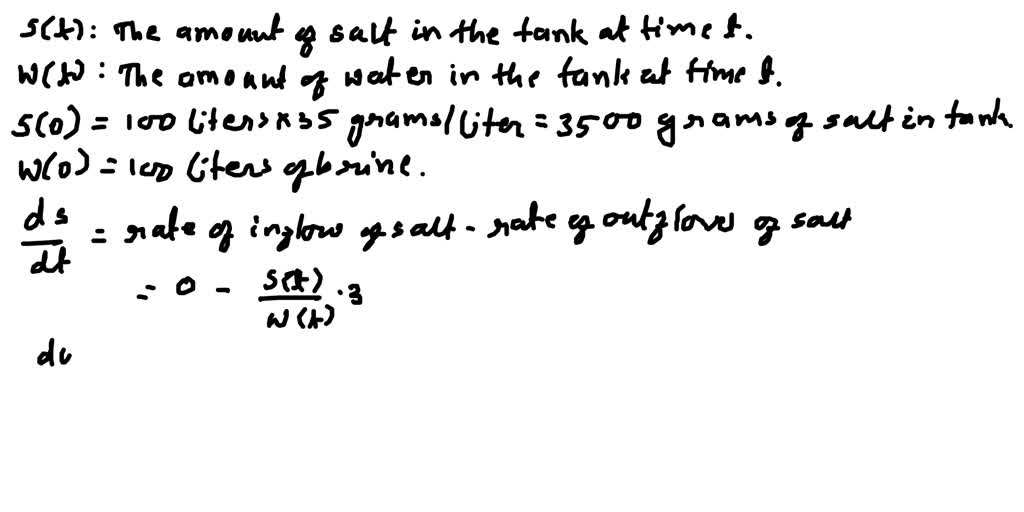 S(t): The amount of salt in the tank at time t.
W(t): The amount of water in the tank at time t.
S(0) = 100 liters x 35 grams/liter = 3500 grams of salt in tank
W(0) = 100 liters of brine.
ds/dt = rate of inflow of salt - rate of outflow of salt
= 0 - S(t)/W(t) · 3
d